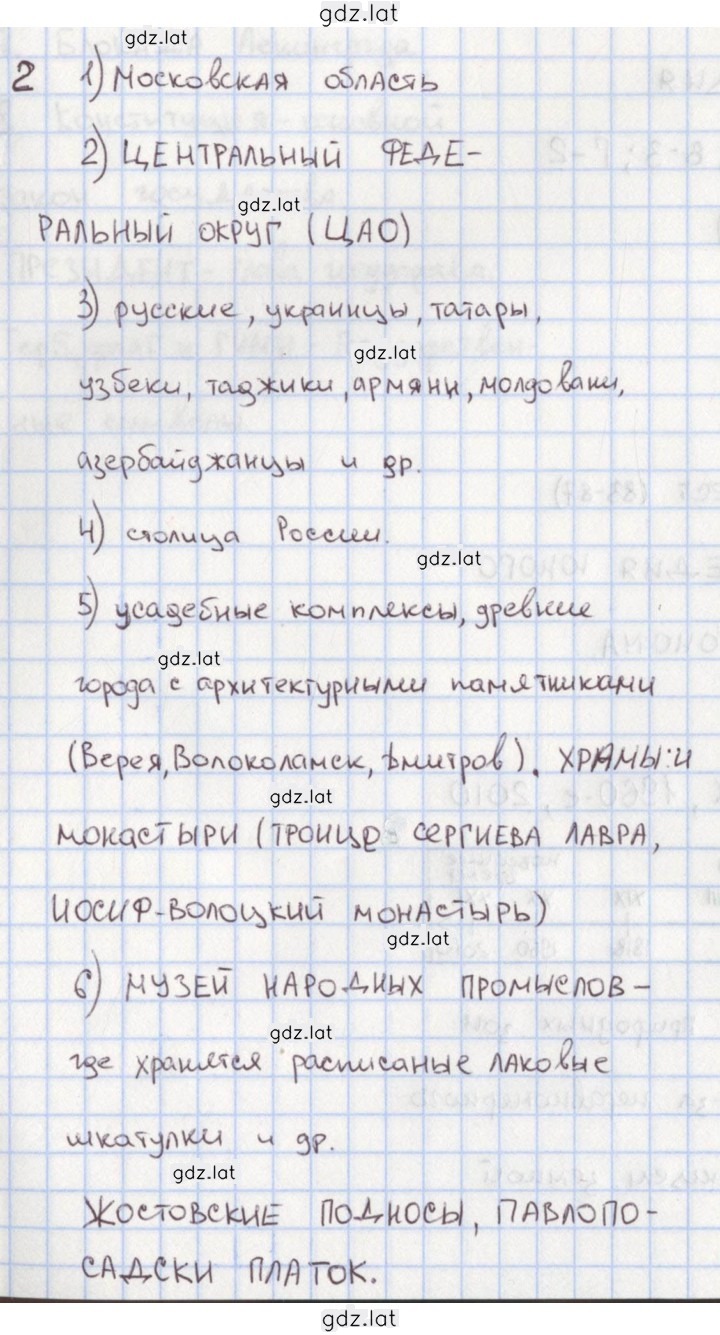 gdz.lat
gdz.lat
2 1) Московская область
2) ЦЕНТРАЛЬНЫЙ ФЕДЕ-
gdz.lat
РАЛЬНЫЙ ОКРУГ (ЦАО)
3) русские, украинцы, татары,
gdz.lat
узбеки, таджики, армяни, молдовани,
азербайджанцы и др.
4) столица России.
gdz.lat
5) усадебные комплексы, древние
gdz.lat
города с архитектурными памятниками
(Верея, Волоколамск, Дмитров). ХРАМЫ: И
gdz.lat
МОНАСТЫРИ (ТРОИЦЕ СЕРГИЕВА ЛАВРА,
ИОСИФ-ВОЛОЦКИЙ МОНАСТЫРЬ)
gdz.lat
6) МУЗЕЙ НАРОДНЫХ ПРОМЫСЛОВ -
gdz.lat
где хранятся расписаные лаковые
шкатулки и др.
gdz.lat
ЖОСТОВСКИЕ ПОДНОСЫ, ПАВЛОПО-
САДСКИ ПЛАТОК.
gdz.lat